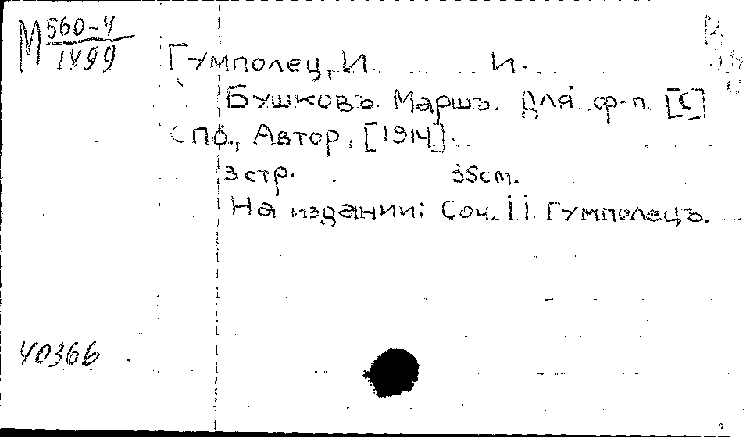 М 560-4
1499
Гумполец, И. И.
Бушковъ Маршъ. Для ф-п. [С]
Спб., Автор, [1914].
3 стр. 35 см.
На издании: Соч. I. I. Гумполецъ.
40366